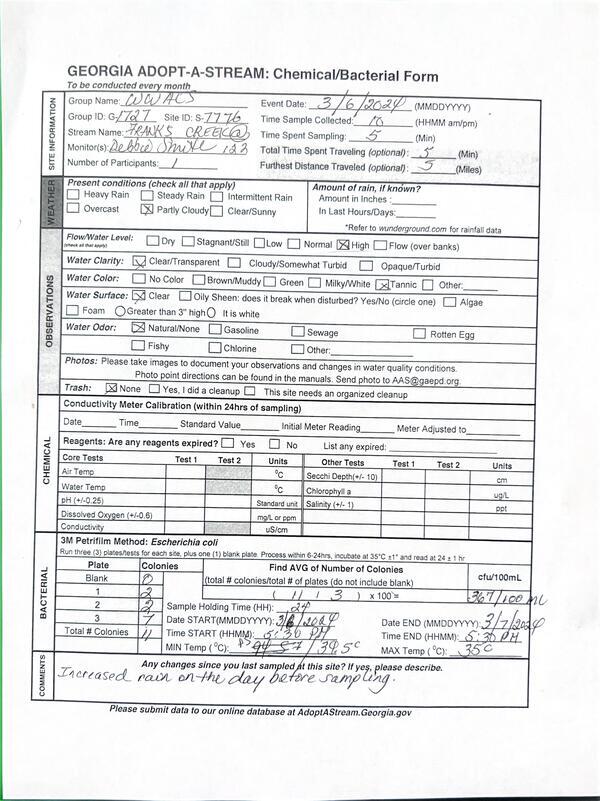 GEORGIA ADOPT-A-STREAM: Chemical/Bacterial Form
To be conducted every month
SITE INFORMATION
Group Name: WWALS Event Date: 3/6/2024 (MMDDYYYY)
Group ID: G-1727 Site ID: S-7776 Time Sample Collected: 10 (HHMM am/pm)
Stream Name: FRANKS CREEK@ Time Spent Sampling: 5 (Min)
Monitor(s): Debbie Smith 123 Total Time Spent Traveling (optional): 5 (Min)
Number of Participants: 1 Furthest Distance Traveled (optional): 5 (Miles)
WEATHER
Present conditions (check all that apply) Amount of rain, if known?
Heavy Rain Steady Rain Intermittent Rain Amount in Inches :
Overcast Partly Cloudy Clear/Sunny In Last Hours/Days:
*Refer to wunderground.com for rainfall data
OBSERVATIONS
Flow/Water Level: Dry Stagnant/Still Low Normal High Flow (over banks)
(check all that apply)
Water Clarity: Clear/Transparent Cloudy/Somewhat Turbid Opaque/Turbid
Water Color: No Color Brown/Muddy Green Milky/White Tannic Other:
Water Surface: Clear Oily Sheen: does it break when disturbed? Yes/No (circle one) Algae
Foam Greater than 3" high It is white
Water Odor: Natural/None Gasoline Sewage Rotten Egg
Fishy Chlorine Other:
Photos: Please take images to document your observations and changes in water quality conditions.
Photo point directions can be found in the manuals. Send photo to AAS@gaepd.org.
Trash: None Yes, I did a cleanup This site needs an organized cleanup
CHEMICAL
Conductivity Meter Calibration (within 24hrs of sampling)
Date Time Standard Value Initial Meter Reading Meter Adjusted to
Reagents: Are any reagents expired? Yes No List any expired:
Core Tests Test 1 Test 2 Units Other Tests Test 1 Test 2 Units
Air Temp °C Secchi Depth(+/- 10) cm
Water Temp °C Chlorophyll a ug/L
pH (+/-0.25) Standard unit Salinity (+/- 1) ppt
Dissolved Oxygen (+/-0.6) mg/L or ppm
Conductivity uS/cm
BACTERIAL
3M Petrifilm Method: Escherichia coli
Run three (3) plates/tests for each site, plus one (1) blank plate. Process within 6-24hrs, incubate at 35°C ±1° and read at 24 ± 1 hr
Plate Colonies Find AVG of Number of Colonies cfu/100mL
Blank 0 (total # colonies/total # of plates (do not include blank)
1 2 ( 11 / 3 ) x 100 = 367/100 ML
2 2 Sample Holding Time (HH): 24
3 7 Date START(MMDDYYYY): 3/6/2024 Date END (MMDDYYYY) 3/7/2024
Total # Colonies 11 Time START (HHMM): 5:30 PM Time END (HHMM): 5:30 PM
MIN Temp (°C): 34.5c MAX Temp (°C): 35c
COMMENTS
Any changes since you last sampled at this site? If yes, please describe.
Increased rain on the day before sampling.
Please submit data to our online database at AdoptAStream.Georgia.gov